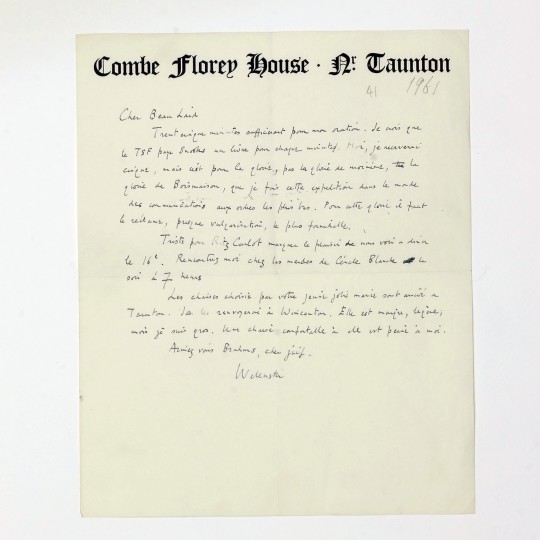 Combe Florey House · Nr. Taunton
41 1961
Cher Beau Laid
Trent cinque minutes suffisent pour mon oration. Je vois que
le TSF paye une livre pour chaque minute. Moi, je recevrai
cinque, mais c'est pour la gloire, pas la gloire de moi même, la
gloire de, que je fais cette expedition dans le monde
des communications aux ordres les plus bas. Pour cette gloire il faut
le reclame, presque, le plus formidable.
Triste pour Ritz Carlot manquer le plaisir de vous voir a diner
le 16e. Rencontrez moi chez les de Cercle Blanche le
soir à 7 heures
Les chaises choisie par votre jolie sont arrivé a
Taunton. Je les renvoyerai à Wincanton. Elle est maigre, legère,
mois je suis gros. Une chaise confortable à elle est peine à moi.
Aimez vous Brahms, cher juif.